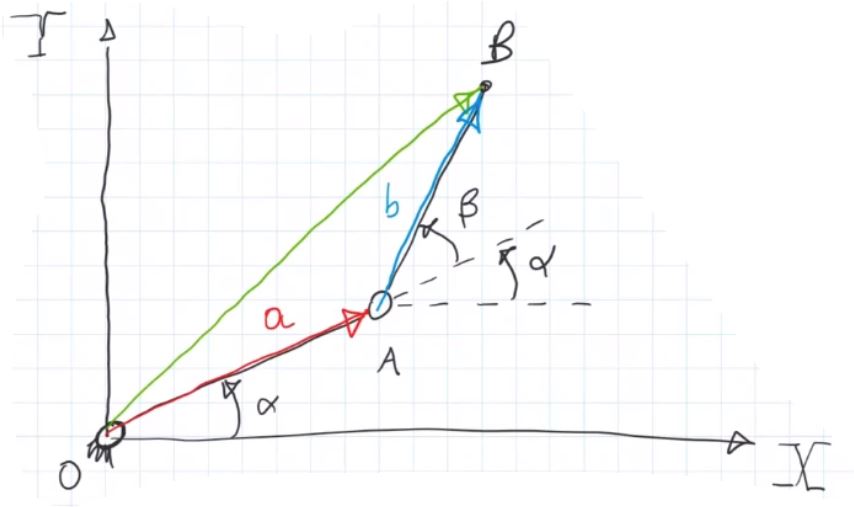 Y
B
b
β
α
a
A
α
O
X